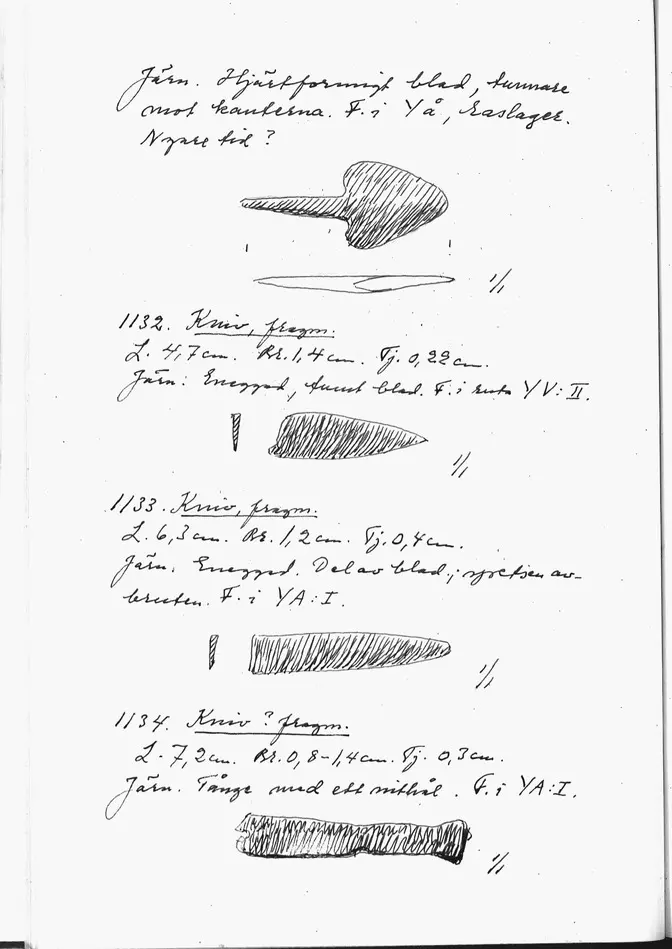 Järn. Hjärtformigt blad, tunnare
mot kanterna. F. i YÅ, raslager.
Nyare tid?
1/1
1132. Kniv, fragm.
L. 4,7 cm. Br. 1,4 cm. Tj. 0,22 cm.
Järn. Eneggad, tunt blad. F. i ruta YV:II.
1/1
1133. Kniv, fragm.
L. 6,3 cm. Br. 1,2 cm. Tj. 0,4 cm.
Järn. Eneggad. Del av blad; spetsen av-
bruten. F. i YA:I.
1/1
1134. Kniv? fragm.
L. 7,2 cm. Br. 0,8-1,4 cm. Tj. 0,3 cm.
Järn. Tånge med ett nithål. F. i YA:I.
1/1